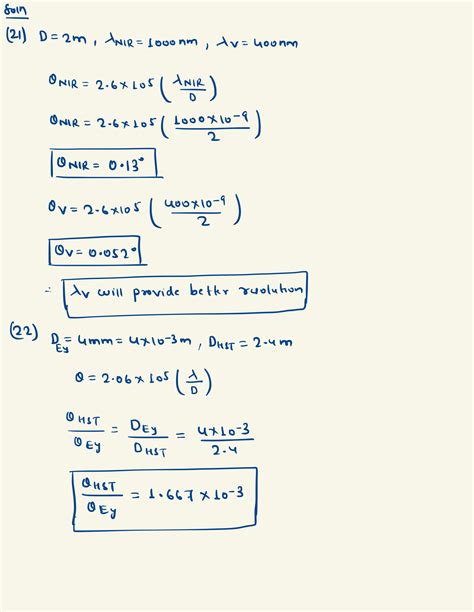 Soln
(21) D = 2m , λNIR = 1000nm , λV = 400nm
θNIR = 2.6×105 (λNIR/D)
θNIR = 2.6×105 (1000×10-9/2)
θNIR = 0.13°
θV = 2.6×105 (400×10-9/2)
θV = 0.052°
∴ λV will provide better resolution
(22) DEy = 4mm = 4×10-3m , DHST = 2.4m
θ = 2.06×105 (λ/D)
θHST/θEy = DEy/DHST = 4×10-3/2.4
θHST/θEy = 1.667×10-3